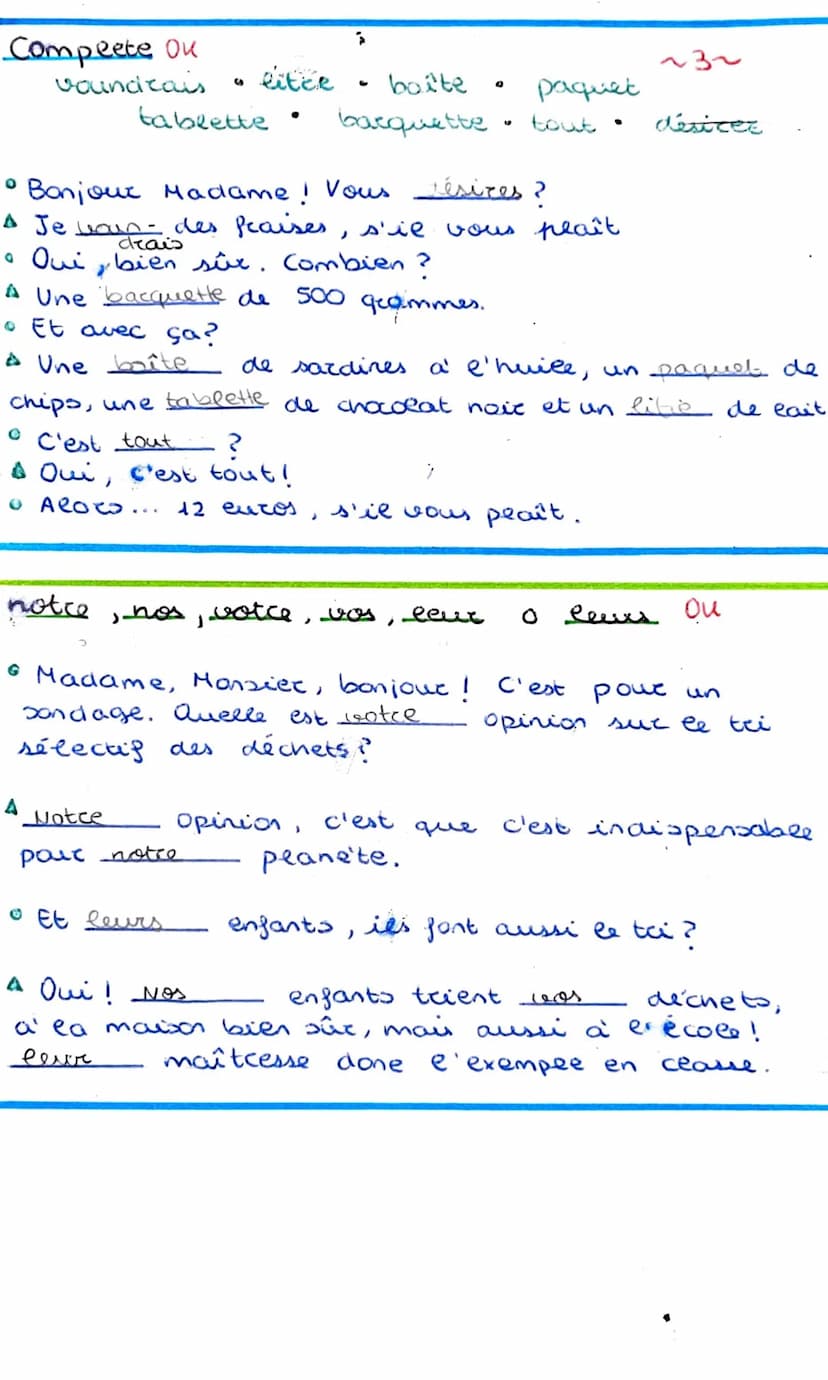 Complete OU
~3~
voundrais • litre • boîte • paquet
tablette • barquette • tout • désirez
• Bonjour Madame! Vous désires?
Je voun-
drais des fraises, s'il vous plaît
• Oui, bien sûr. Combien?
Une bacquette de 500 grammes.
• Et avec ça?
Une boîte de sardines à l'huile, un paquet de
chips, une tablette de chocolat noir et un litre de lait
• C'est tout ?
Oui, c'est tout!
• Alors... 12 euros, s'il vous plaît.
notre, nos, votre, vos, leur o leurs OU
• Madame, Monsier, bonjour! C'est pour un
sondage. Quelle est votre opinion sur le tri
sélectif des déchets?
Notre opinion, c'est que c'est indispensable
pour notre planète.
• Et leurs enfants, ils font aussi le tri?
Oui! Nos enfants trient vos déchets,
à la maison bien sûr, mais aussi à l'école!
leur maîtresse done l'exemple en classe.